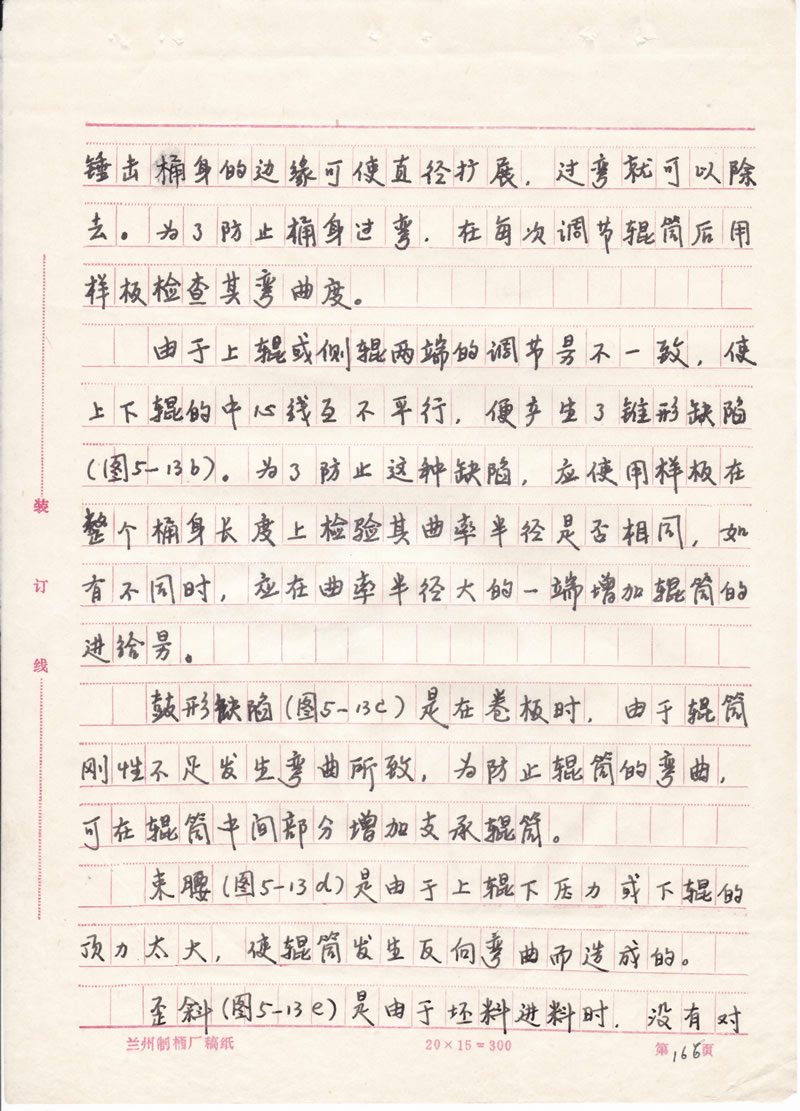 锤击桶身的边缘可使直径扩展，过弯就可以除
去。为了防止桶身过弯，在每次调节辊筒后用
样板检查其弯曲度。
由于上辊或侧辊两端的调节量不一致，使
上下辊的中心线互不平行，便产生了锥形缺陷
(图5-13b)。为了防止这种缺陷，应使用样板在
整个桶身长度上检验其曲率半径是否相同，如
有不同时，应在曲率半径大的一端增加辊筒的
进给量。
鼓形缺陷(图5-13c)是在卷板时，由于辊筒
刚性不足发生弯曲所致，为防止辊筒的弯曲，
可在辊筒中间部分增加支承辊筒。
束腰(图5-13d)是由于上辊下压力或下辊的
顶力太大，使辊筒发生反向弯曲而造成的。
歪斜(图5-13e)是由于坯料进料时，没有对
装订线
兰州制桶厂稿纸 20×15=300 第166页